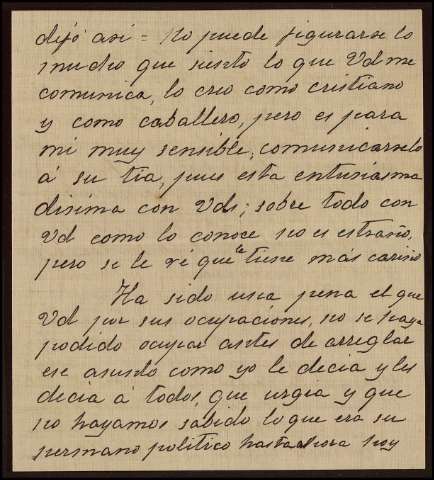 dijó asi = No puede figurarse lo
mucho que siento lo que Vd me
comunica, lo creo como cristiano
y como caballero, pero es para
mi muy sensible, comunicarselo
á su tia, pues esta entusiasma
disima con Vds; sobre todo con
Vd como lo conoce no es estraño,
pero se le vé que le tiene más cariño
Ha sido una pena el que
Vd por sus ocupaciones, no se haya
podido ocupar antes de arreglar
ese asunto como yo le decia y les
decia á todos, que urgia y que
no hayamos sabido lo que era su
hermano politico hasta ahora hoy